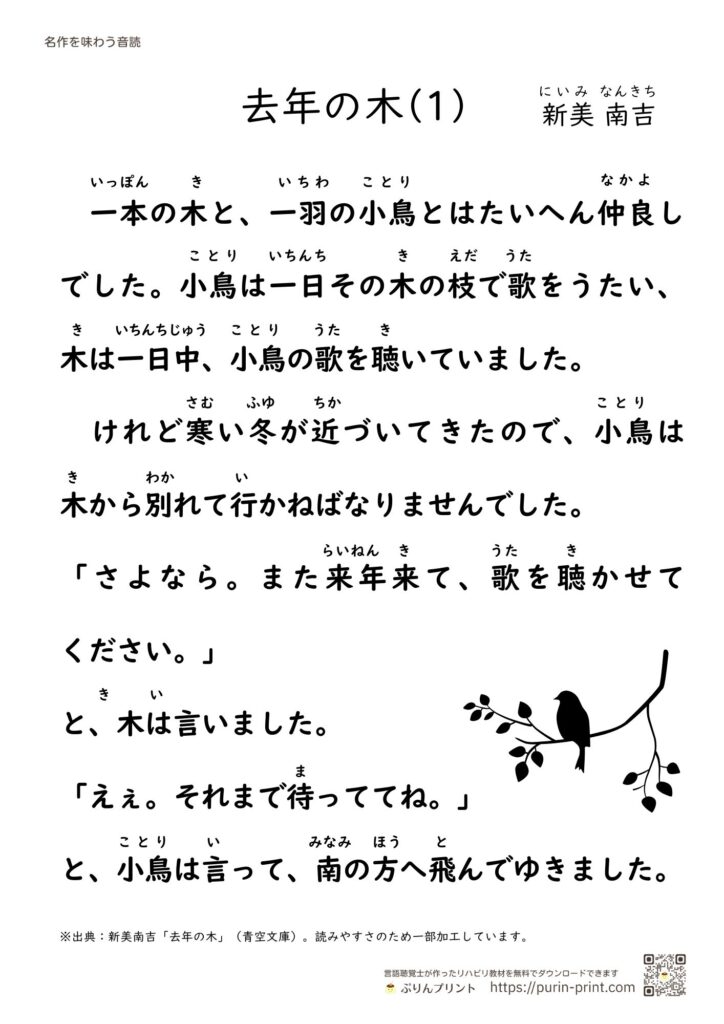 名作を味わう音読
去年の木(1)
にいみ なんきち
新美 南吉
いっぽん き いちわ ことり なかよ
一本の木と、一羽の小鳥とはたいへん仲良し
ことり いちんち き えだ うた
でした。小鳥は一日その木の枝で歌をうたい、
き いちんちじゅう ことり うた き
木は一日中、小鳥の歌を聴いていました。
さむ ふゆ ちか ことり
けれど寒い冬が近づいてきたので、小鳥は
き わか い
木から別れて行かねばなりませんでした。
らいねん き うた き
「さよなら。また来年来て、歌を聴かせて
ください。」
き い
と、木は言いました。
ま
「えぇ。それまで待っててね。」
ことり い みなみ ほう と
と、小鳥は言って、南の方へ飛んでゆきました。
※出典：新美南吉「去年の木」（青空文庫）。読みやすさのため一部加工しています。
言語聴覚士が作ったリハビリ教材を無料でダウンロードできます
ぷりんプリント https://purin-print.com